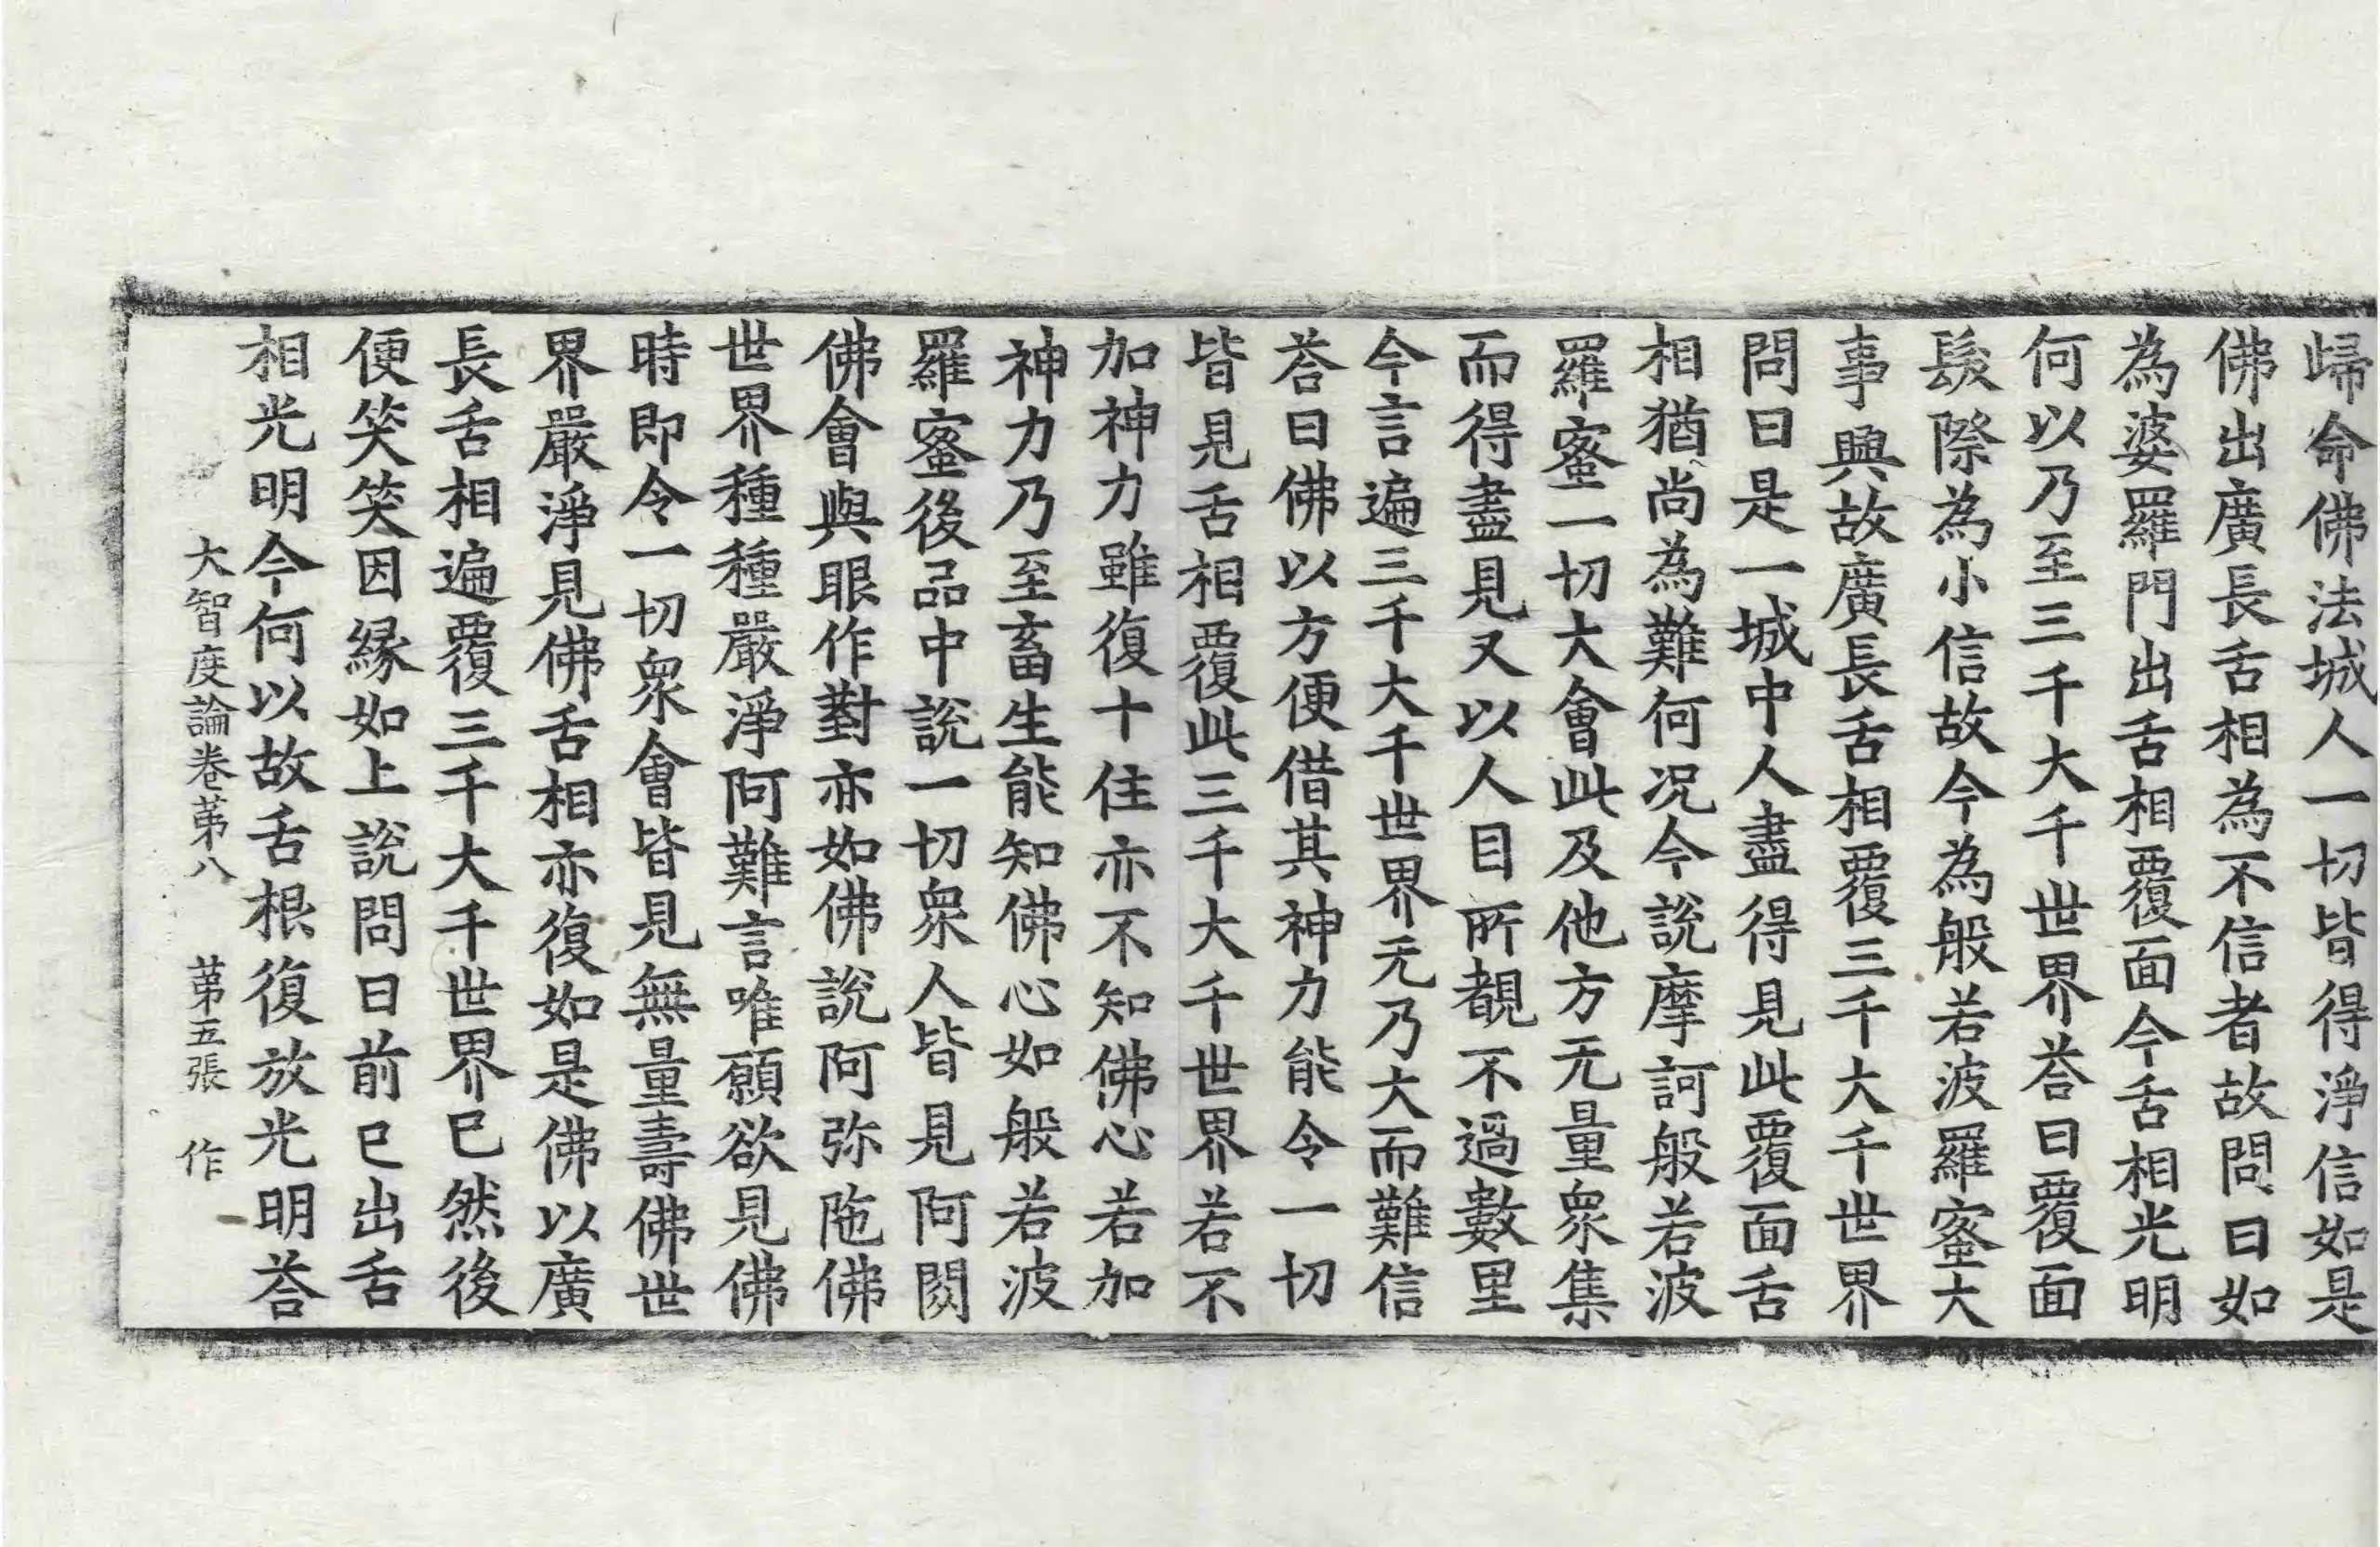 歸命佛法城人一切皆得淨信如是
佛出廣長舌相為不信者故問曰如
為婆羅門出舌相覆面今舌相光明
何以乃至三千大千世界荅曰覆面
髮際為小信故今為般若波羅蜜大
事興故廣長舌相覆三千大千世界
問曰是一城中人盡得見此覆面舌
相猶尚為難何況今說摩訶般若波
羅蜜一切大會此及他方无量衆集
而得盡見又以人目所覩不過數里
今言遍三千大千世界无乃大而難信
荅曰佛以方便借其神力能令一切
皆見舌相覆此三千大千世界若不
加神力雖復十住亦不知佛心若加
神力乃至畜生能知佛心如般若波
羅蜜後品中說一切衆人皆見阿閦
佛會與眼作對亦如佛說阿弥陁佛
世界種種嚴淨阿難言唯願欲見佛
時即令一切衆會皆見無量壽佛世
界嚴淨見佛舌相亦復如是佛以廣
長舌相遍覆三千大千世界已然後
便笑笑因緣如上說問曰前已出舌
相光明今何以故舌根復放光明荅
大智度論卷苐八　苐五張　作